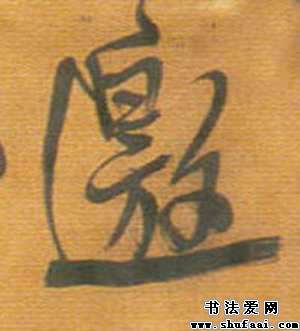 邀
书法爱网
www.shufaai.com